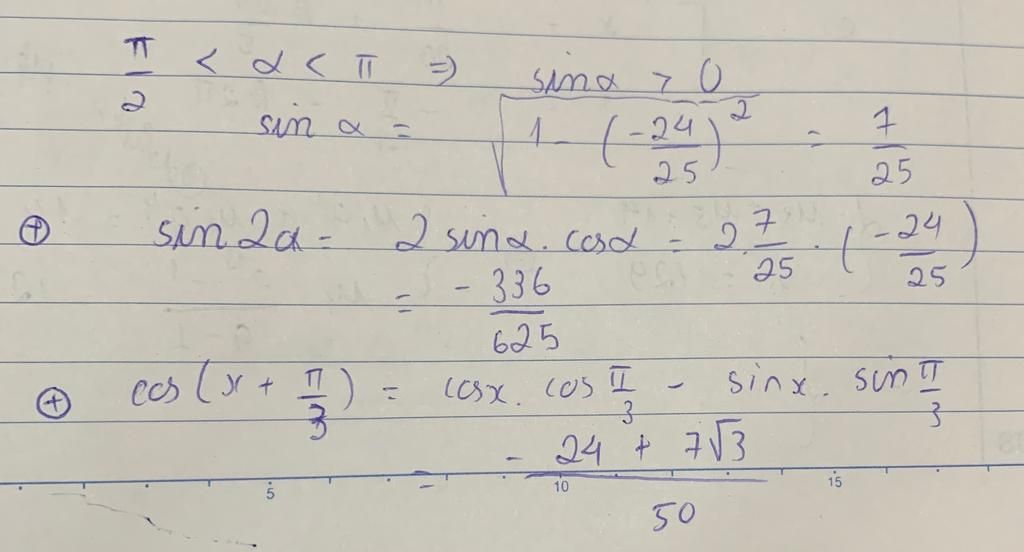 π/2 < α < π ⇒ sinα > 0
sin α = √(1 - (-24/25)²) = 7/25
⊕ sin2α = 2 sinα . cosα = 2.7/25 . (-24/25)
= -336/625
⊕ cos(x + π/3) = cosx . cos π/3 - sinx . sin π/3
= - (24 + 7√3)/50
5 10 15